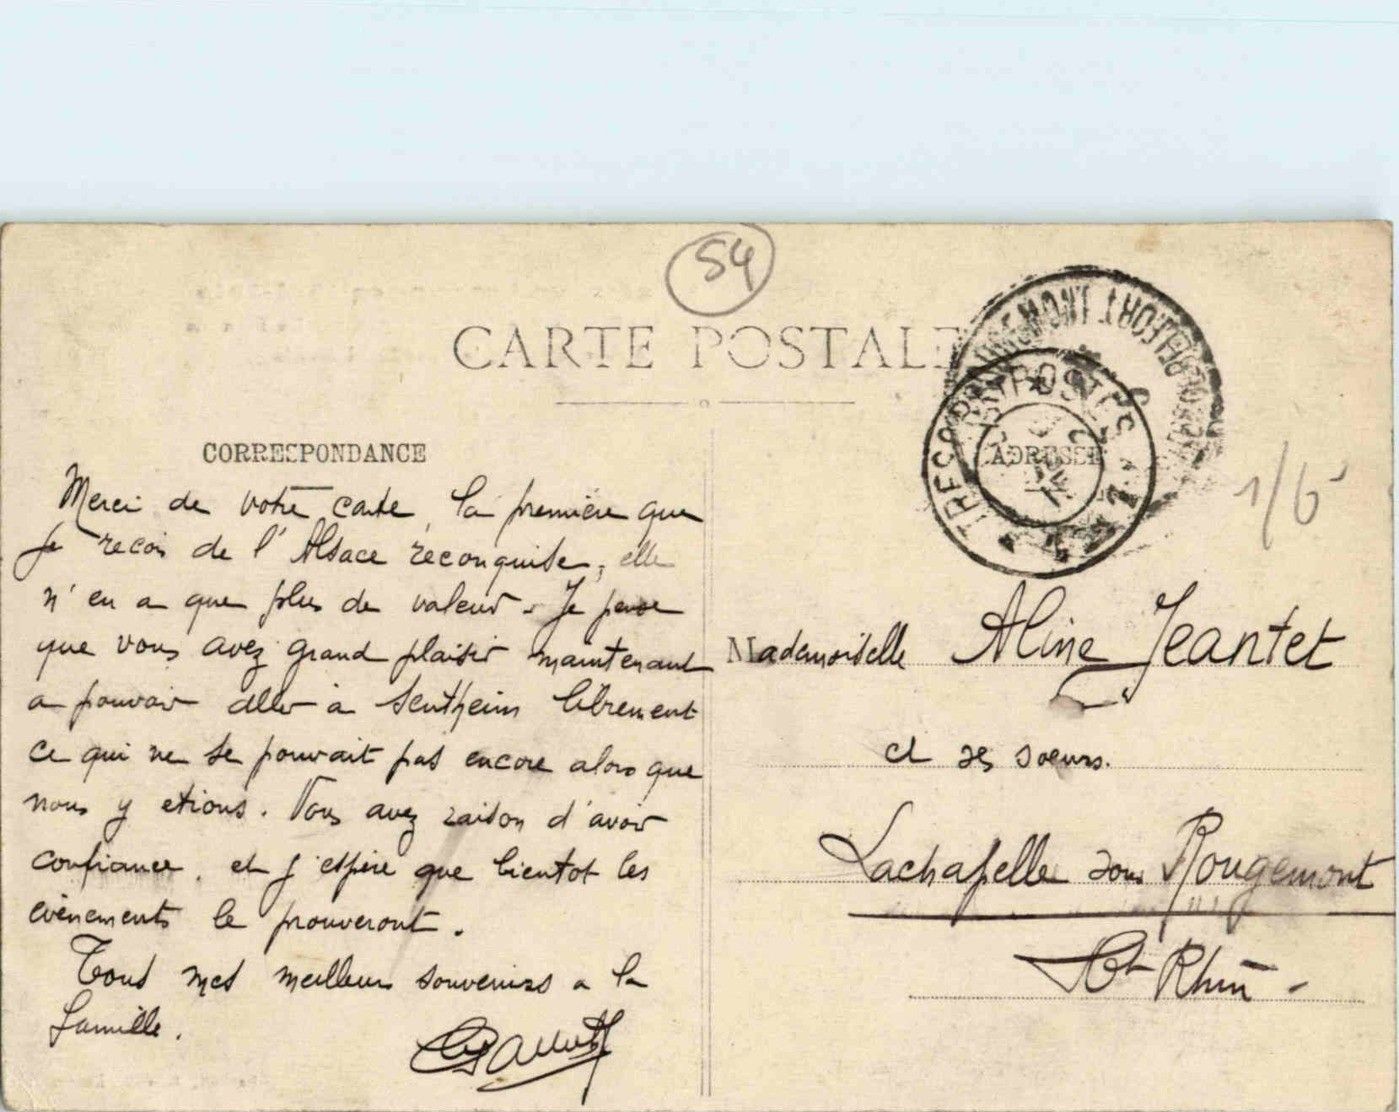 54
CARTE POSTALE
CORRESPONDANCE
ADRESSE
TRESOR ET POSTES
1/6
Merci de votre carte, la première que
je recois de l'Alsace reconquise, elle
n'en a que plus de valeur. Je pense
que vous avez grand plaisir maintenant
a pouvoir aller à Sentheim librement
ce qui ne se pouvait pas encore alors que
nous y etions. Vous avez raison d'avoir
confiance, et j'espère que bientot les
evènements le prouveront.
Tous mes meilleurs souvenirs a la
famille.
Mademoiselle Aline Jeantet
et ses soeurs.
Lachapelle sous Rougemont
Ht Rhin -